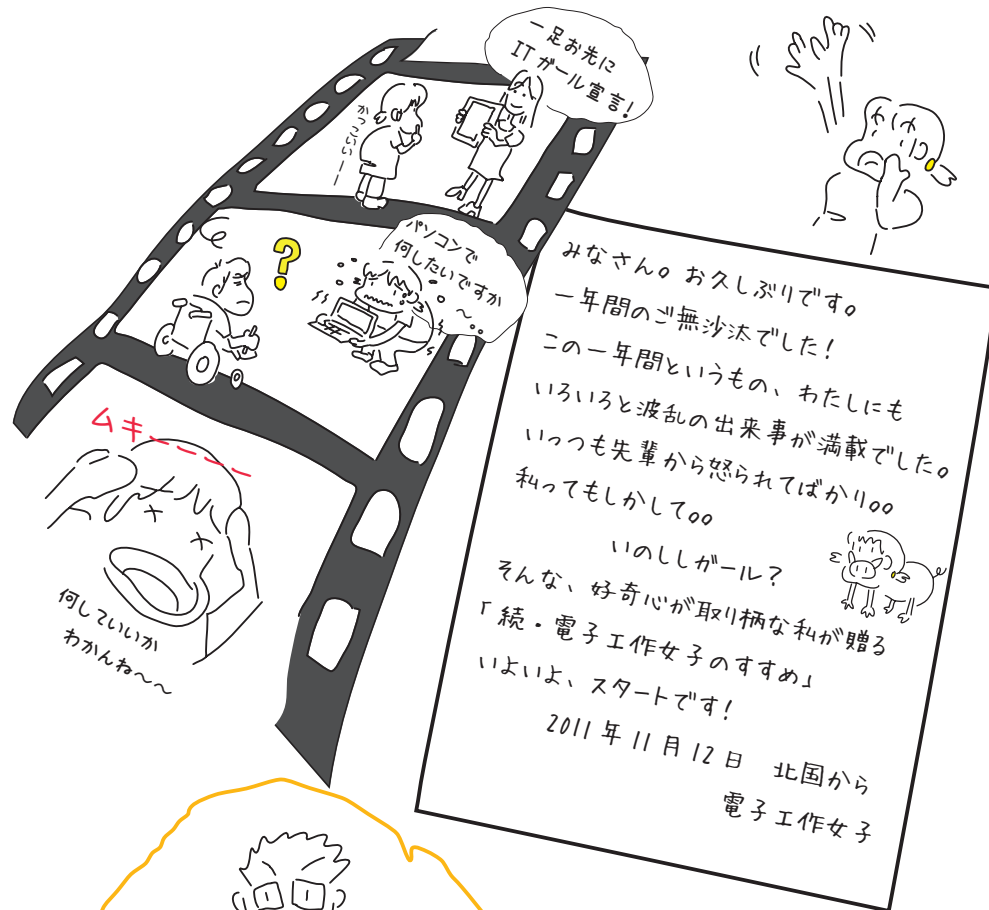 一足お先に
ITガール宣言！
かっこいいーー
パソコンで
何したいですか
～。。
？
ムキーーーーー
何していいか
わかんね～～
みなさん。お久しぶりです。
一年間のご無沙汰でした！
この一年間というもの、わたしにも
いろいろと波乱の出来事が満載でした。
いっつも先輩から怒られてばかり。。
私ってもしかして。。
いのししガール？
そんな、好奇心が取り柄な私が贈る
「続・電子工作女子のすすめ」
いよいよ、スタートです！
2011年11月12日　北国から
電子工作女子